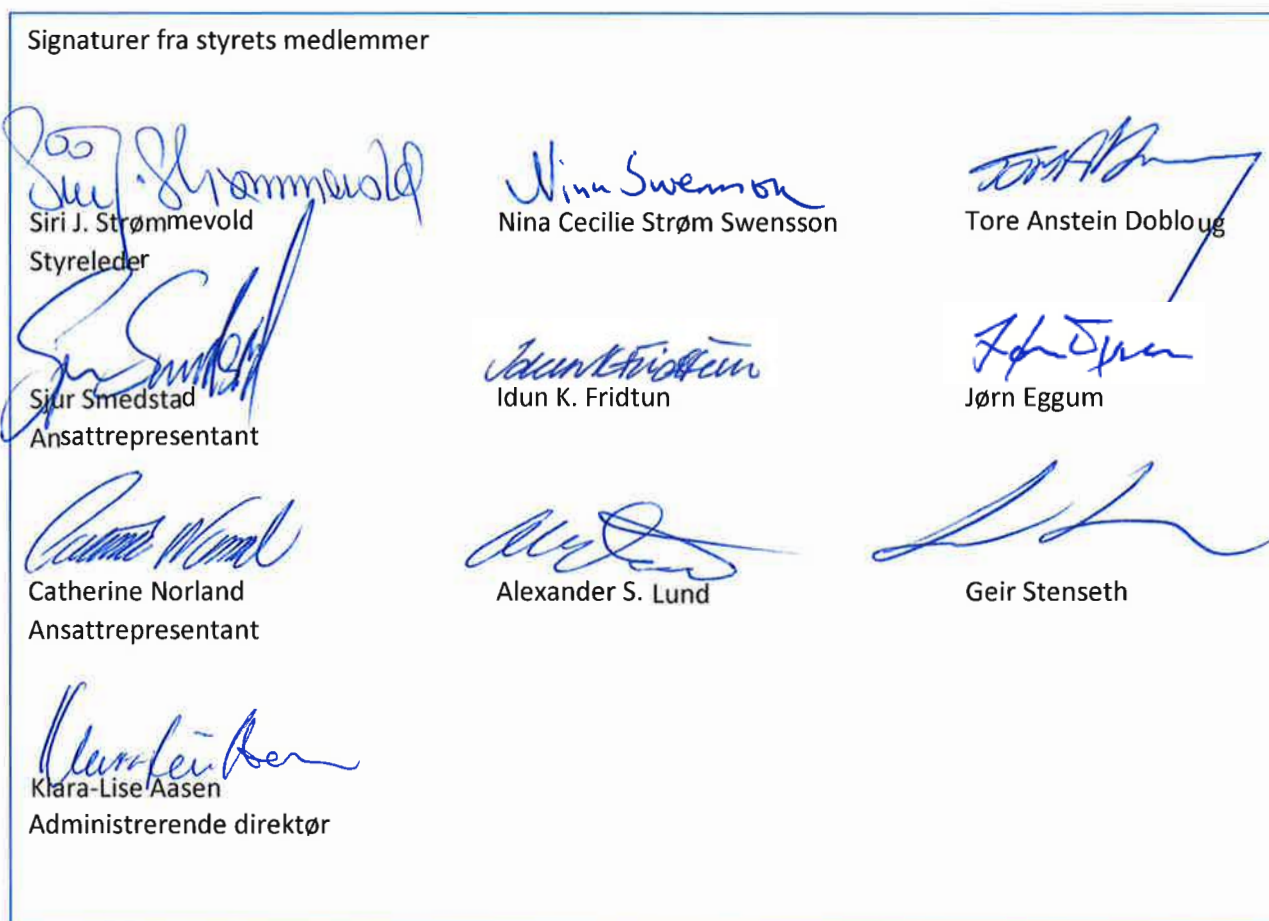 Signaturer fra styrets medlemmer
Siri J. Strømmevold
Siri J. Strømmevold
Styreleder
Nina Swensson
Nina Cecilie Strøm Swensson
Tore Anstein Dobloug
Sjur Smedstad
Ansattrepresentant
Idun K Fridtun
Idun K. Fridtun
Jørn Eggum
Catherine Norland
Ansattrepresentant
Alexander S. Lund
Geir Stenseth
Klara-Lise Aasen
Administrerende direktør